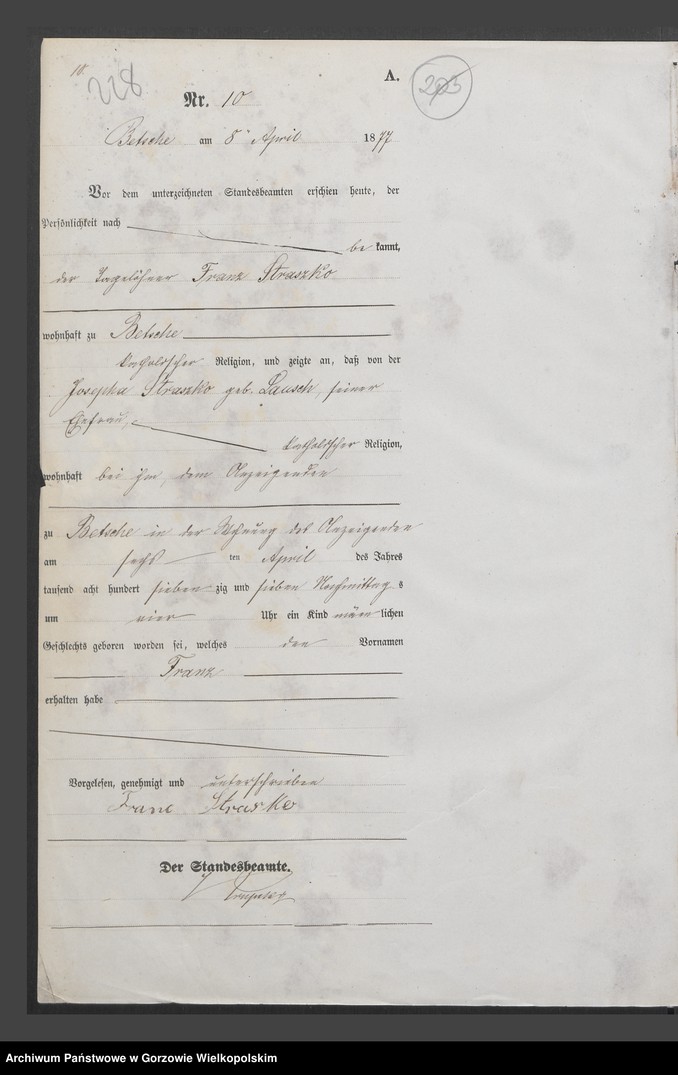 10.
228
A.
203
Nr. 10
Betsche am 8ten April 1877
Vor dem unterzeichneten Standesbeamten erschien heute, der
Persönlichkeit nach
be kannt,
der Tagelöhner Franz Straszko
wohnhaft zu Betsche
katholischer Religion, und zeigte an, daß von der
Josepha Straszko geb. Lausch, seiner
Ehefrau,
katholischer Religion,
wohnhaft bei ihm, dem Anzeigenden
zu Betsche in der Wohnung des Anzeigenden
am sechs ten April des Jahres
tausend acht hundert sieben zig und sieben Nachmittag s
um vier Uhr ein Kind männ lichen
Geschlechts geboren worden sei, welches den Vornamen
Franz
erhalten habe
Vorgelesen, genehmigt und unterschrieben
Franc Strasko
Der Standesbeamte.
Archiwum Państwowe w Gorzowie Wielkopolskim